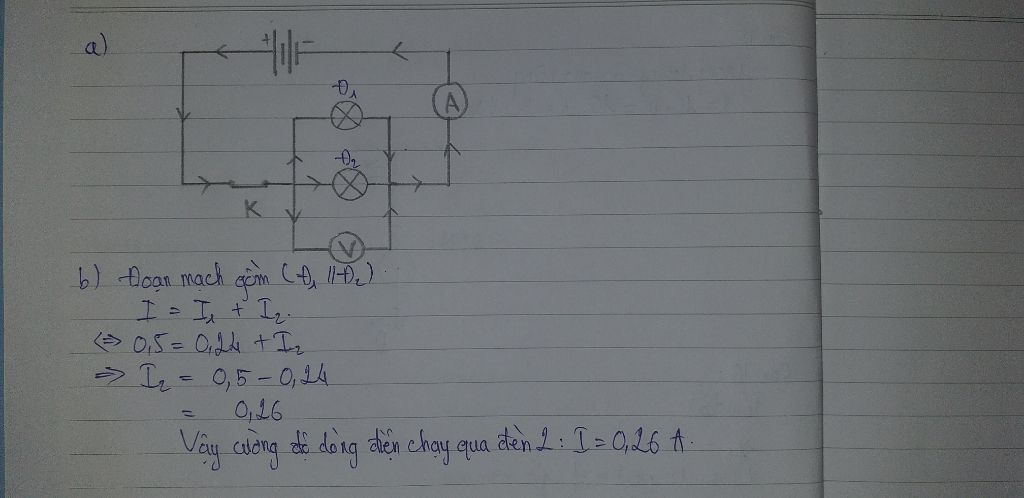 a)
+ -
Đ₁
A
Đ₂
K
V
b) Đoạn mạch gồm (Đ₁ // Đ₂).
I = I₁ + I₂.
<=> 0,5 = 0,24 + I₂
=> I₂ = 0,5 - 0,24
= 0,26
Vậy cường độ dòng điện chạy qua đèn 2 : I = 0,26 A.